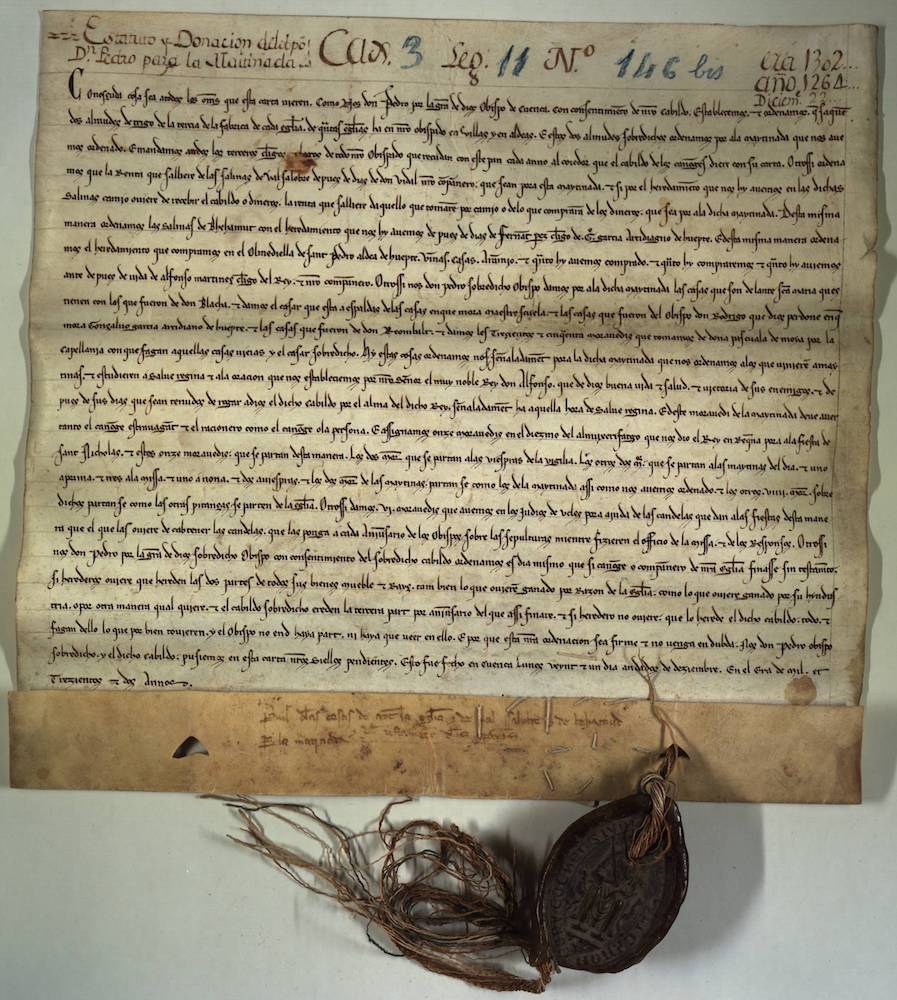 Estatuto y Donacion del Ob̃po
Dn. Pedro para la Maitinada
Cax. 3 Leg. 11 N.º 146 bis
era 1302...
año 1264...
Diciem. 22
Conosçuda cosa sea atodos los om̃s que esta carta vieren. Como Nos don Pedro por la gr̃a de dios Obispo de Cuenca. con consentimiẽto de nr̃o cabildo. Establecemos. ⁊ ordenamos.
dos almudes de trigo de la tercia de la fabrica de cada egl̃ia. de q̃ntas egl̃ias ha en nr̃o obispado en villas y en aldeas. E estos dos almudes sobredichos ordenamos por ala matinada que nos ave
mos ordenado. E mandamos atodos los terceros cl̃igos de todo nr̃o Obispado que recudan con este pan cada anno al cogedor que el cabildo de los canoges diere con su carta. Otrossi ordena
mos que la Renta que salliere de las salinas de Valsalobre depues de dias de don Vidal nr̃o cõpanero. que sean pora esta matinada. ⁊ si por el heredamiẽto que nos hy avemos en las dichas
Salinas camio oviere de recebir el cabildo o dineros. la renta que salliere daquello que tomare por camio o delo que comprarẽ de los dineros. que sea por ala dicha matinada. Desta misma
manera ordenamos las salinas de Belhamur con el heredamiento que nos hy avemos de pues de dias de Ferrnãt peres cl̃igo de garcia Arcidiagno de huepte. E desta misma manera ordena
mos el heredamiento que compramos en el Olmediella de sant Pedro aldea de huepte. Vinnas. casas. ⁊ q̃nto hy avemos comprado. ⁊ q̃nto hy compraremos ⁊ q̃nto hy oviemos
ante de pues de vida de alfonso martines cl̃igo del Rey. ⁊ nr̃o compãnero. Otrossi nos don pedro sobredicho Obispo damos por ala dicha matinada las casas que son delante sc̃a maria que se
tienen con las que fueron de don Blacha. ⁊ damos el casar que esta a espaldas de las casas en que mora maestrescuela. ⁊ las casas que fueron del Obispo don Rodrigo que dios perdone en q̃
mora Gonsalvo garcia arcidiano de huepte. ⁊ las casas que fueron de don Reombalt. ⁊ damos les Trezientos ⁊ cinq̃enta moravedis que tomamos de dona pascuala de moya por la
capellania con que fagan aquellas casas nuevas y el casar sobredicho. Hy estas cosas ordenamos nos sen̄aladamẽt pora la dicha matinada que nos ordenamos alos que vinierẽ a may
tinas. ⁊ estudieren a salve regina ⁊ ala oracion que nos establecemos por nr̃o Sen̄or el muy noble Rey don Alfonso. que de dios buena vida ⁊ salud. ⁊ victoria de sus enemigos. ⁊ de
pues de sus dias que sean tenudos de rogar a dios el dicho cabildo por el alma del dicho Rey. sen̄aladamẽt ha aquella hora de salve regina. E deste moravedi de la matinada deve aver
tanto el canoge estravagãt ⁊ el racionero como el canoge o la persona. E assignamos onze moravedis en el diezmo del almoxerifargo que nos dio el Rey en Req̃na pora ala fiesta de
sant Nicholas. ⁊ estos onze moravedis: que se partan desta manera. Los dos que se partan alas viespras de la vigilia. Los otros dos que se partan alas matinas del dia. ⁊ uno
a prima. ⁊ tres ala missa. ⁊ uno a nona. ⁊ dos a viespras. ⁊ los dos de las matinas: partan se como los de la matinada assi como nos avemos ordenado. ⁊ los otros .viiii. sobre
dichos partan se como las otras pitanças se parten de la egl̃ia. Otrossi damos .vi. moravedis que avemos en los Judios de Ucles pora ayuda de las candelas que dan alas fiestas desta mane
ra que el que las oviere de cabtener las candelas. que las ponga a cada anniũsario de los Obispos sobre las sepulturas mientre fizieren el officio de la missa. ⁊ de los Responsos. Otrossi
nos don Pedro por la gr̃a de dios sobredicho Obispo con consentimiento del sobredicho cabildo ordenamos es dia mismo que si canoge o compãnero de nr̃a Egl̃ia finasse sin testamẽto.
si herederos oviere que hereden las dos partes de todos sus bienes mueble ⁊ Rays. tam bien lo que ovierẽ ganado por Razon de la egl̃ia: como lo que oviere ganado por su hyndus
tria. o por otra manera qual quiere. ⁊ el cabildo sobredicho ereden la tercera part por anniũsario del que assi finare. ⁊ si heredero no oviere: que lo herede el dicho cabildo: todo. ⁊
fagan dello lo que por bien tovieren. y el Obispo no end haya part. ni haya que veer en ello. E por que esta nr̃a ordenacion sea firme ⁊ no venga en dubda: Nos don Pedro obispo
sobredicho. y el dicho cabildo: pusiemos en esta carta nr̃os Siellos pendientes. Esto fue f̃cho en Cuenca Lunes veynt ⁊ un dia andados de deziembre. En el Era de mil. et
Trezientos ⁊ dos Annos.